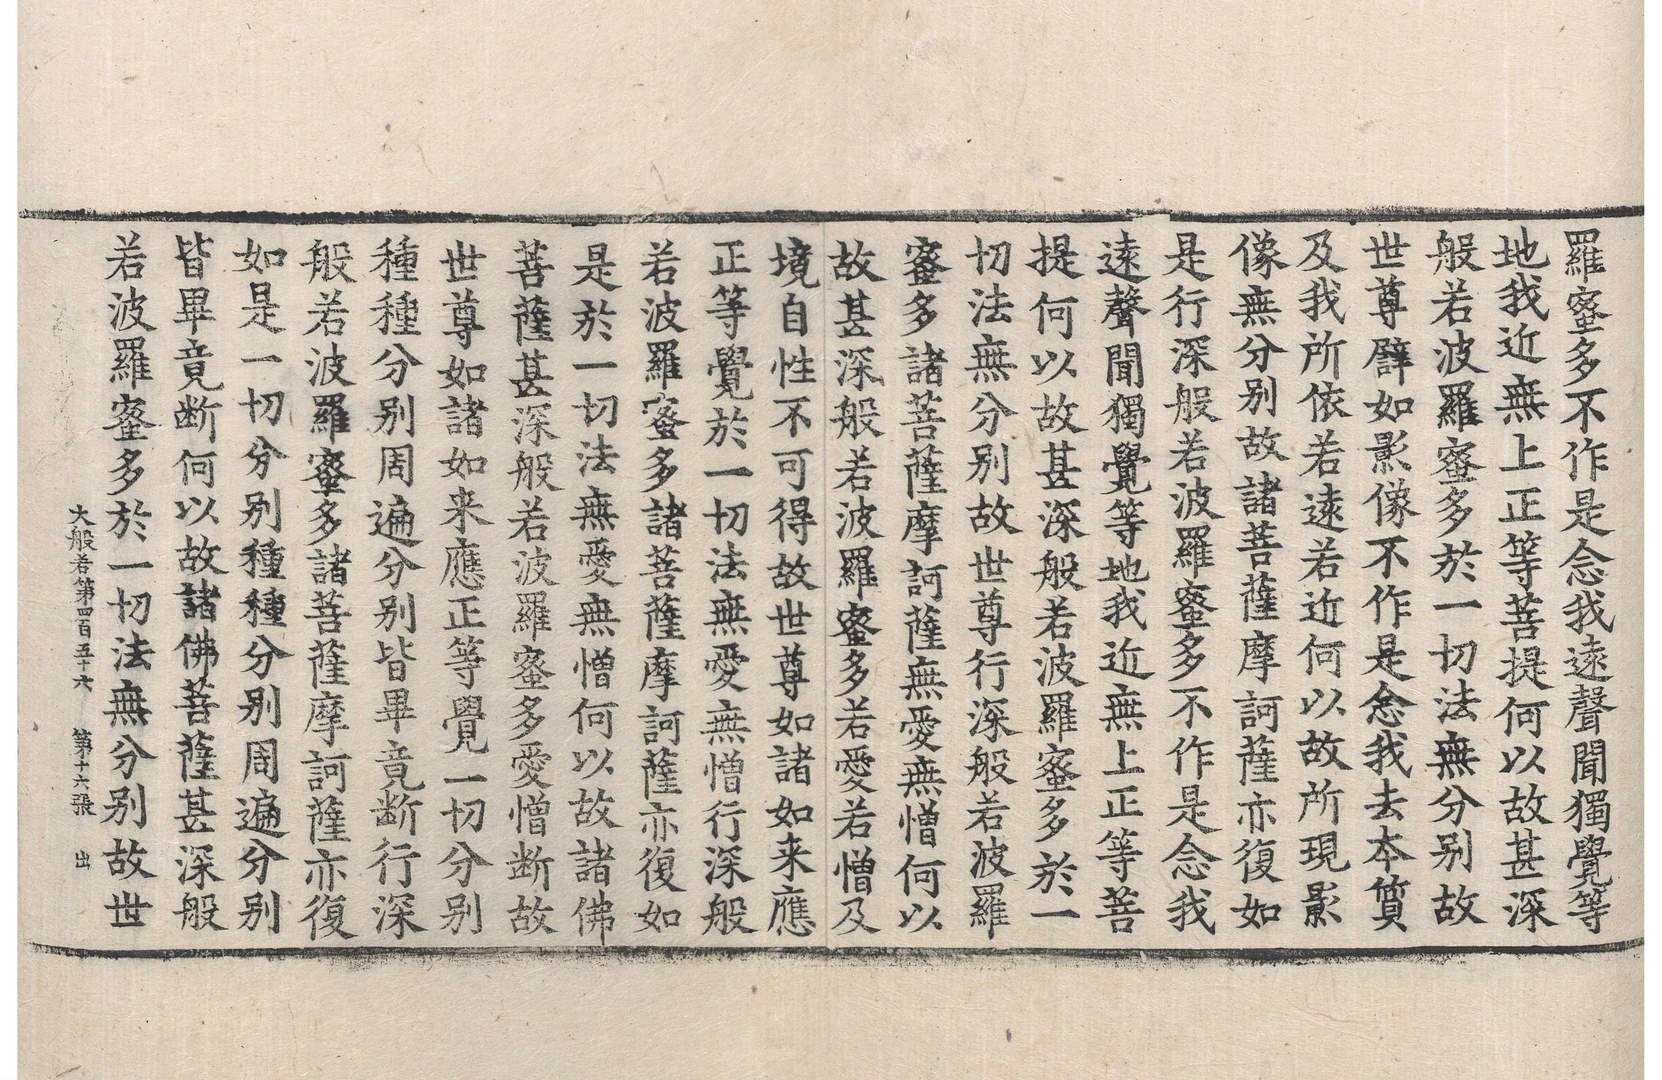 羅蜜多不作是念我遠聲聞獨覺等
地我近無上正等菩提何以故甚深
般若波羅蜜多於一切法無分別故
世尊譬如影像不作是念我去本質
及我所依若遠若近何以故所現影
像無分別故諸菩薩摩訶薩亦復如
是行深般若波羅蜜多不作是念我
遠聲聞獨覺等地我近無上正等菩
提何以故甚深般若波羅蜜多於一
切法無分別故世尊行深般若波羅
蜜多諸菩薩摩訶薩無愛無憎何以
故甚深般若波羅蜜多若愛若憎及
境自性不可得故世尊如諸如来應
正等覺於一切法無愛無憎行深般
若波羅蜜多諸菩薩摩訶薩亦復如
是於一切法無愛無憎何以故諸佛
菩薩甚深般若波羅蜜多愛憎断故
世尊如諸如来應正等覺一切分別
種種分別周遍分別皆畢竟断行深
般若波羅蜜多諸菩薩摩訶薩亦復
如是一切分別種種分別周遍分別
皆畢竟断何以故諸佛菩薩甚深般
若波羅蜜多於一切法無分別故世
大般若第四百五十六 第十六張 出